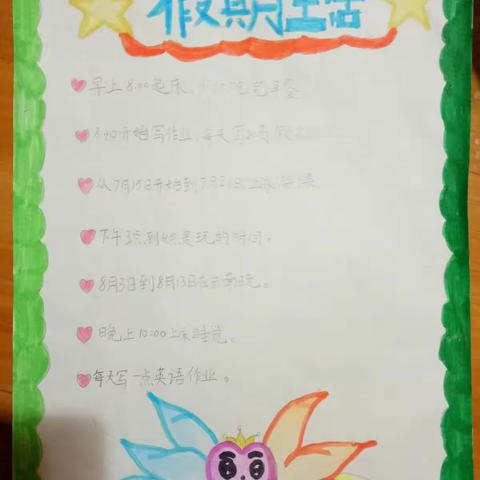 假期生活
早上8:00起床、 吃完早餐。
开始写作业、每天写
从7月15日开始到7月2 日上
下午3点到 点是玩的时间。
8月3日到8月13日在云南玩。
晚上10:00上床睡觉。
每天写一点英语作业。